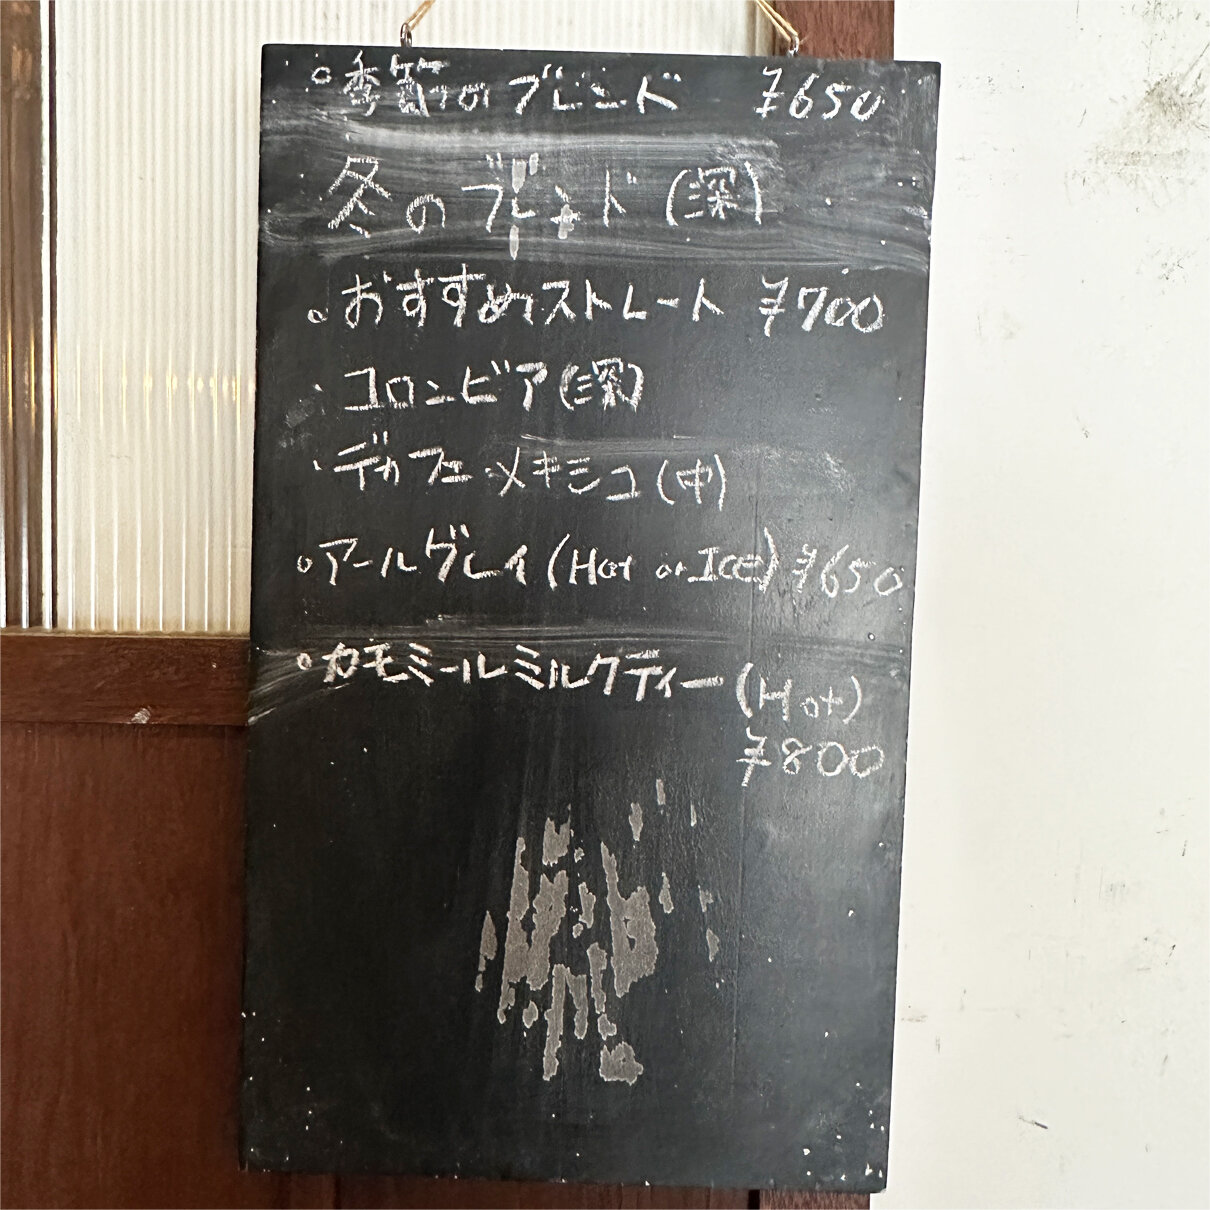 ○季節のブレンド ¥650
冬のブレンド(深)
○おすすめストレート ¥700
・コロンビア(深)
・デカフェ・メキシコ(中)
○アールグレイ(Hot or ICE) ¥650
○カモミールミルクティー(Hot)
¥800